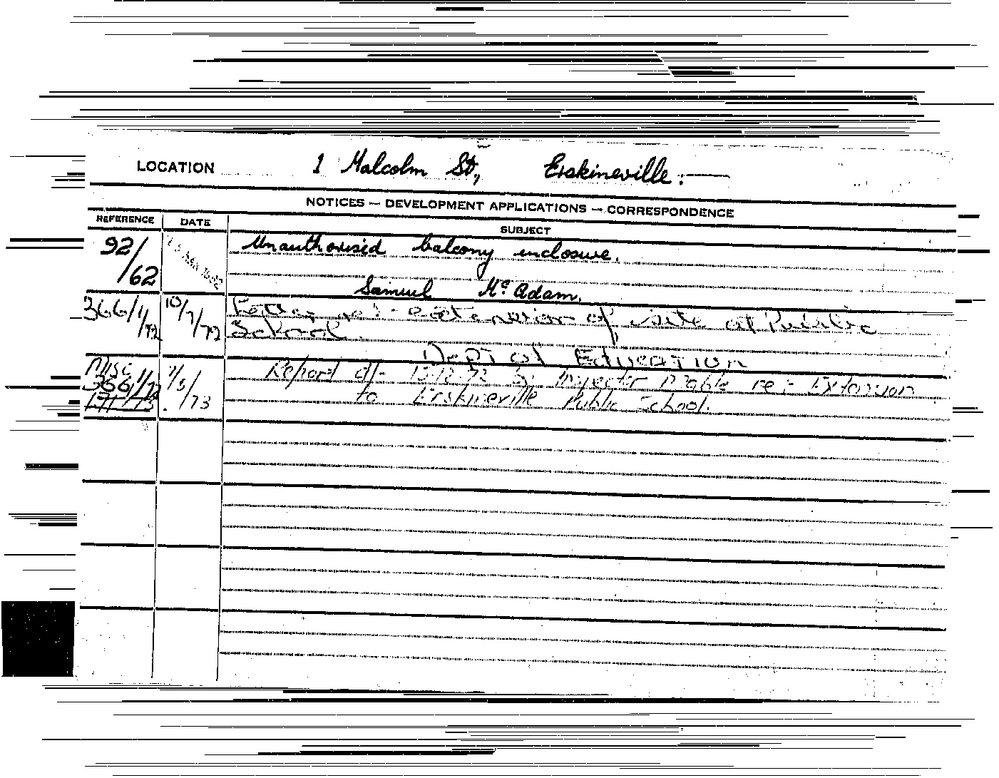 LOCATION 1 Malcolm St., Erskineville.
NOTICES — DEVELOPMENT APPLICATIONS — CORRESPONDENCE
REFERENCE DATE SUBJECT
92/ Unauthorised balcony inclosure.
/62
Samuel McAdam.
366/1/72 10/7/72 re:- extension of site at Public
School.
Dept of Education
Misc Report of:- 15.12.72 by Inspector re:- Extension
366/1/72 /5/73 to Erskineville Public School.